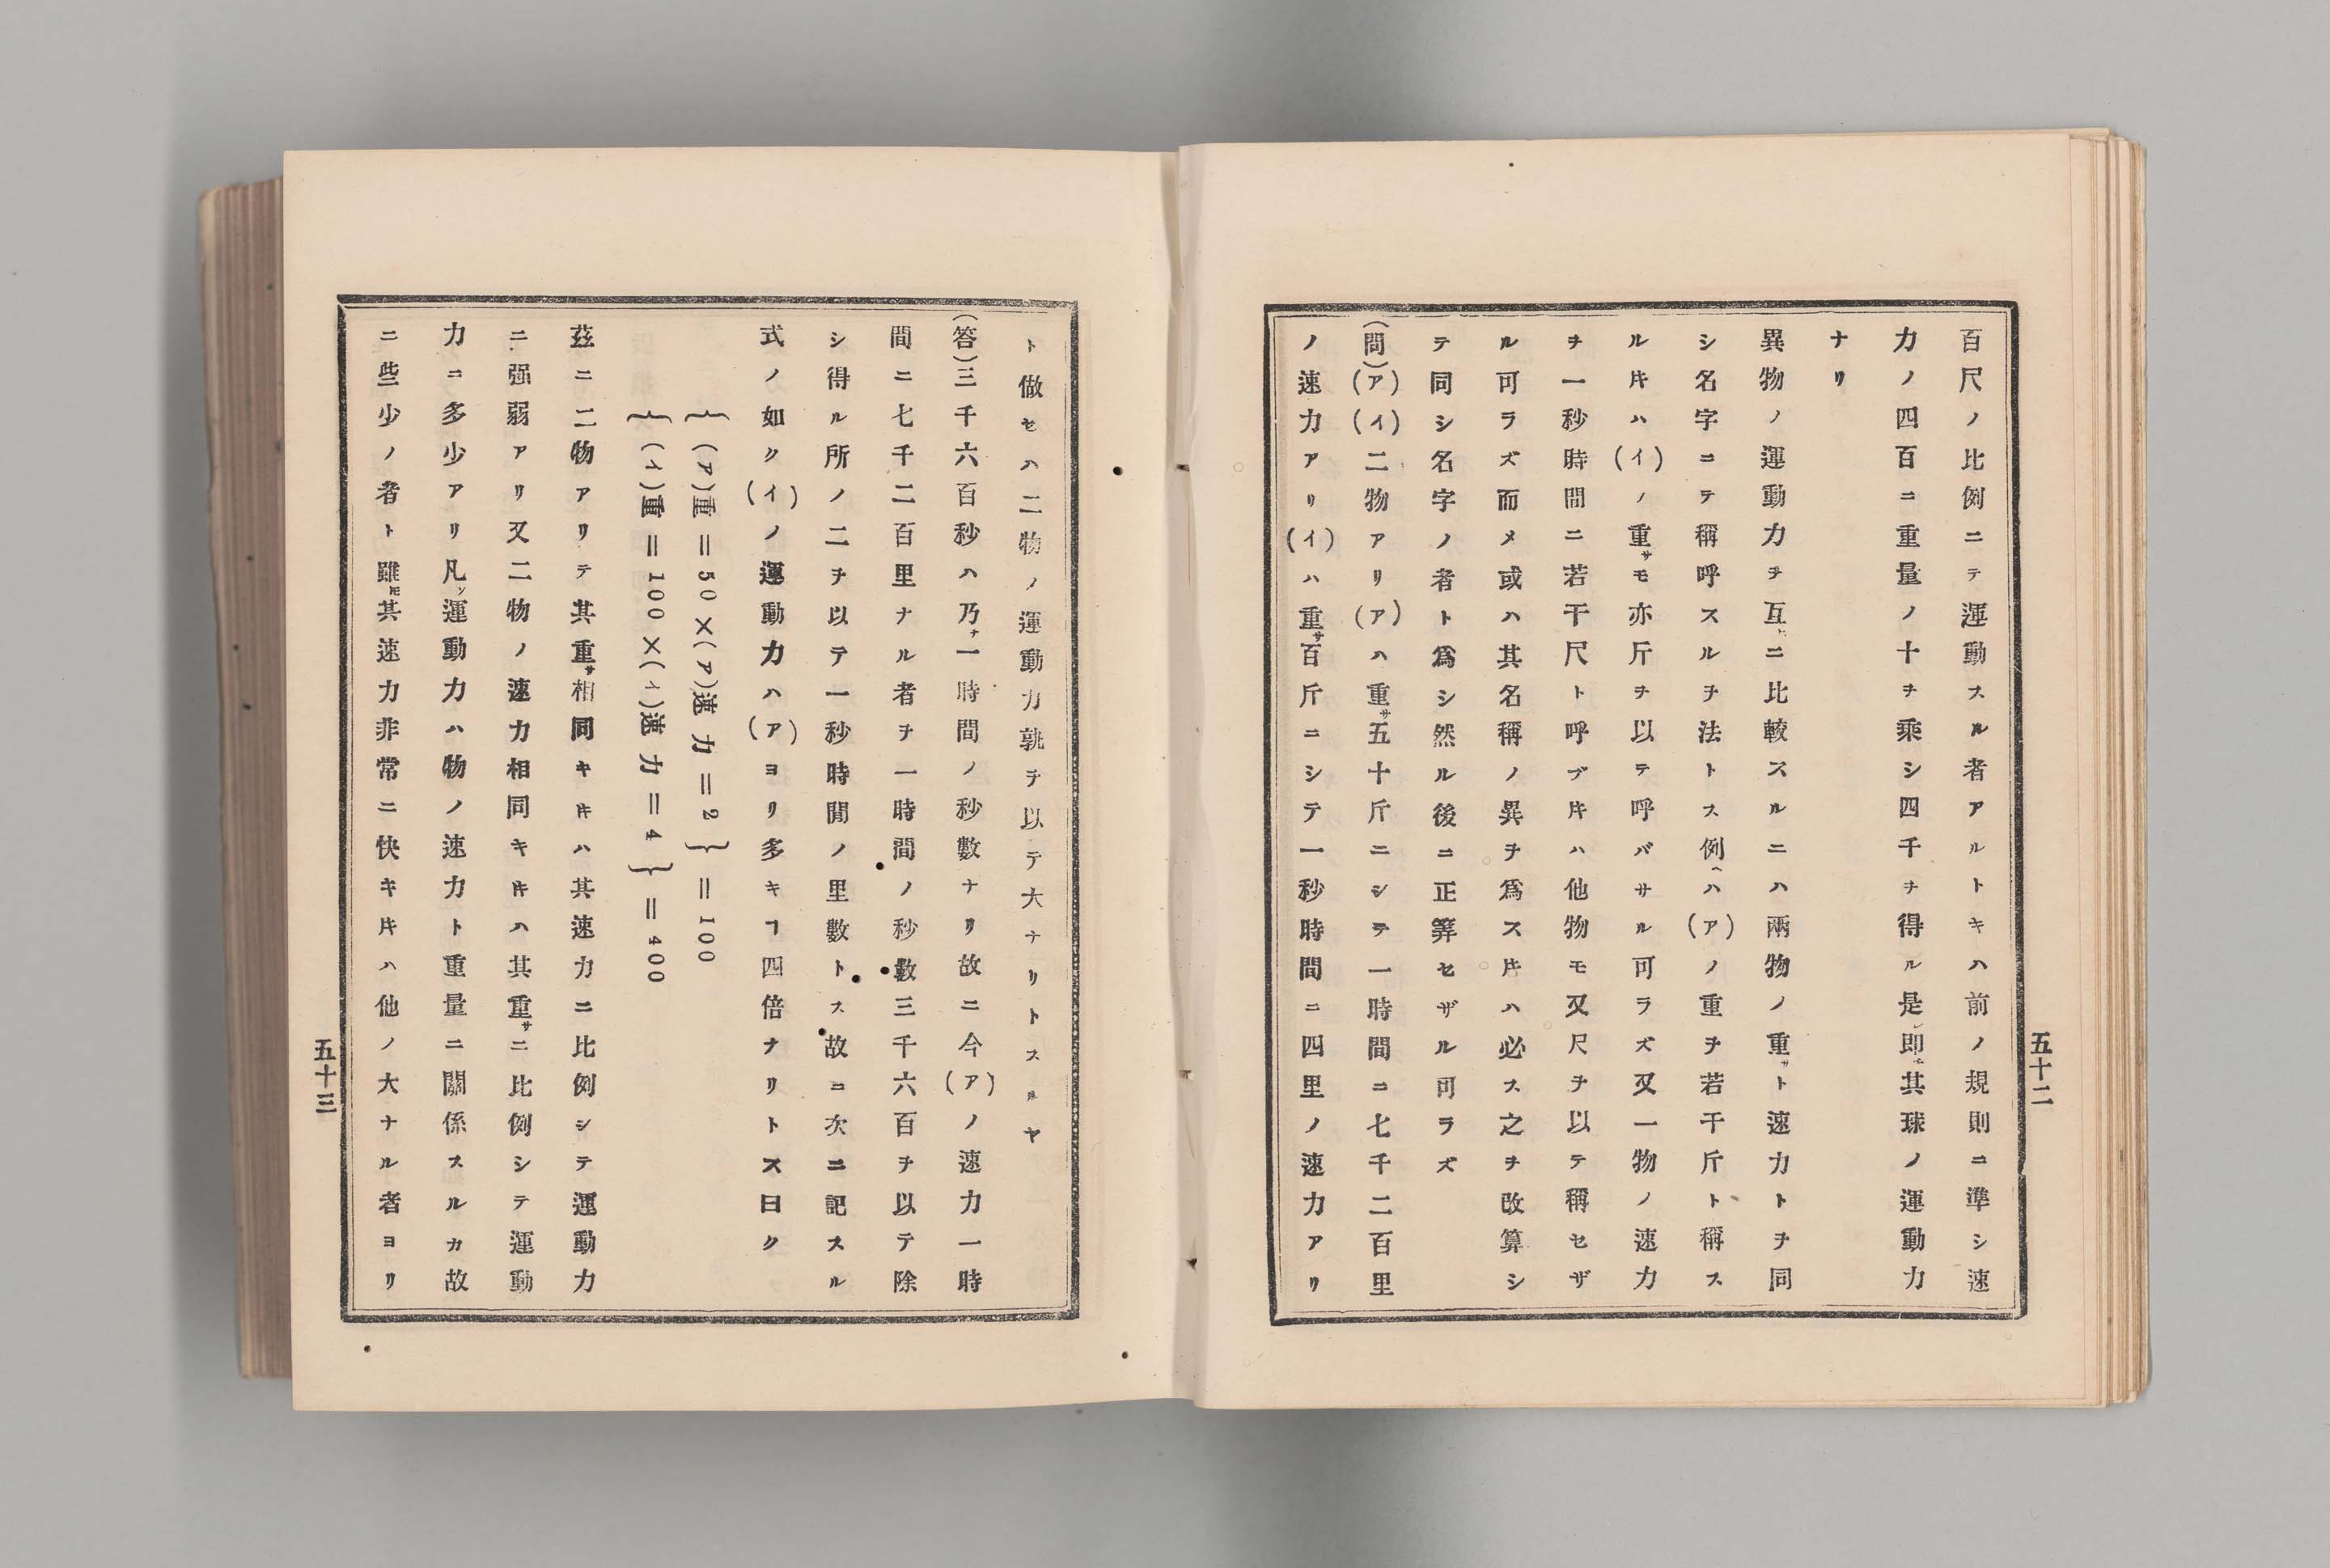 百尺ノ比例ニテ運動スル者アルトキハ前ノ規則ニ準シ速
力ノ四百ニ重量ノ十ヲ乘シ四千ヲ得ル是レ即チ其球ノ運動力
ナリ
異物ノ運動力ヲ互ヒニ比較スルニハ兩物ノ重サト速力トヲ同
シ名字ニテ稱呼スルヲ法トス例ヘハ(ア)ノ重ヲ若干斤ト稱ス
ル片ハ(イ)ノ重サモ亦斤ヲ以テ呼バサル可ラズ又一物ノ速力
ヲ一秒時間ニ若干尺ト呼ブ片ハ他物モ又尺ヲ以テ稱セザ
ル可ラズ而メ或ハ其名稱ノ異ヲ爲ス片ハ必ス之ヲ改算シ
テ同シ名字ノ者ト爲シ然ル後ニ正筭セザル可ラズ
(問)(ア)(イ)二物アリ(ア)ハ重サ五十斤ニシテ一時間ニ七千二百里
ノ速力アリ(イ)ハ重サ百斤ニシテ一秒時間ニ四里ノ速力アリ
五十二
ト做セハ二物ノ運動力孰ヲ以テ大ナリトスルヤ
(答)三千六百秒ハ乃チ一時間ノ秒數ナリ故ニ今(ア)ノ速力一時
間ニ七千二百里ナル者ヲ一時間ノ秒數三千六百ヲ以テ除
シ得ル所ノ二ヲ以テ一秒時間ノ里數トス故ニ次ニ記スル
式ノ如ク(イ)ノ運動力ハ(ア)ヨリ多キヿ四倍ナリトス曰ク
{(ア)重=50×(ア)速力=2}=100
{(イ)重=100×(イ)速力=4}=400
茲ニ二物アリテ其重サ相同キ片ハ其速力ニ比例シテ運動力
ニ强弱アリ又二物ノ速力相同キ片ハ其重サニ比例シテ運動
力ニ多少アリ凡ソ運動力ハ物ノ速力ト重量ニ關係スルカ故
ニ些少ノ者ト雖𪜈其速力非常ニ快キ片ハ他ノ大ナル者ヨリ
五十三